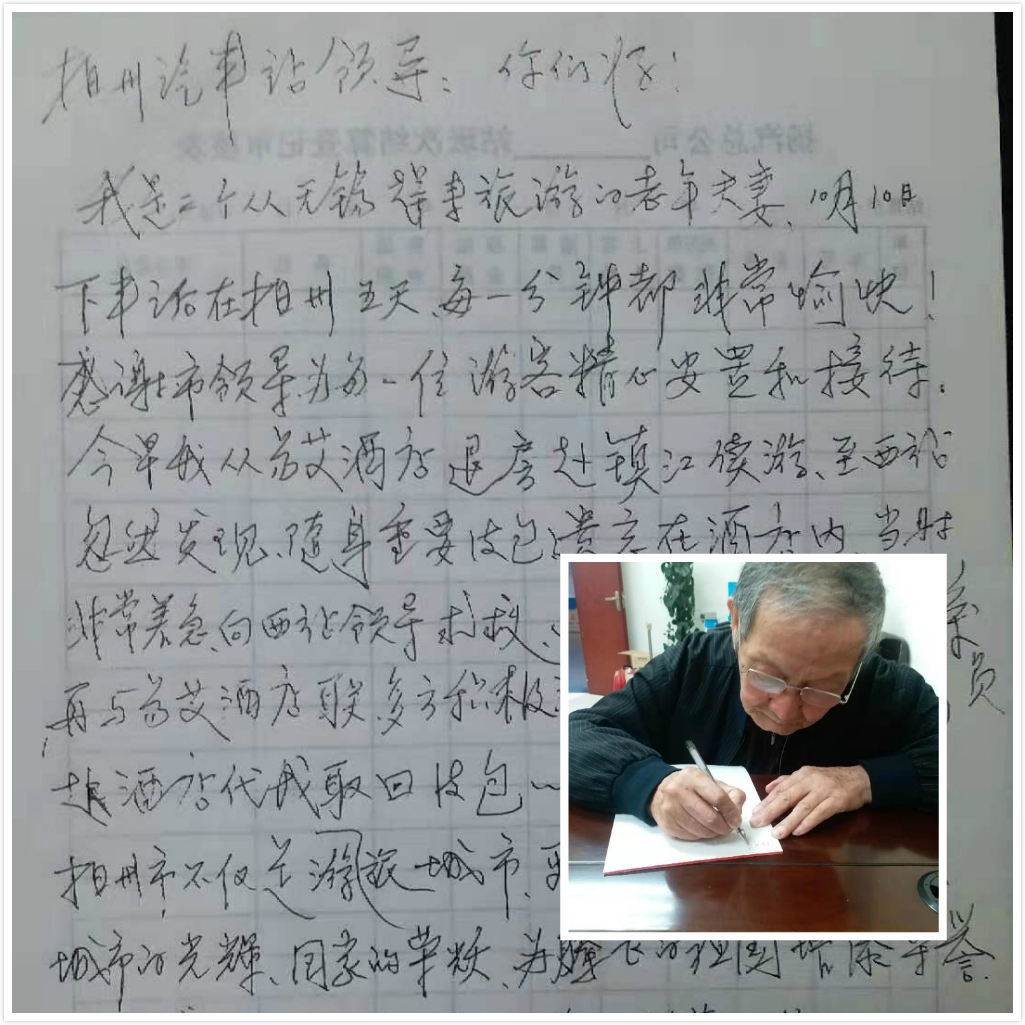 扬州汽车站领导：你们好！
我是二个从无锡 车旅游的老年夫妻、10月10日
下车 在扬州五天、每一分钟都非常愉快！
感谢市领导为每一位游客精心安置和接待.
今早我从 艾酒店退房赴镇江续游、至西站
忽然发现、随身重要皮包遗忘在酒店内、当时
非常着急、向西站领导求救、
再与 艾酒店联、多方积极 员
赴酒店代我取回皮包一
扬州市不仅是游旅城市、
城市的光辉、国家的荣耀、为腾飞的祖国增添 誉.